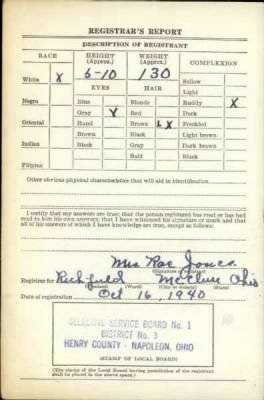 REGISTRAR'S REPORT
DESCRIPTION OF REGISTRANT
RACE HEIGHT (Approx.) WEIGHT (Approx.) COMPLEXION
White X 5-10 130 Sallow
Light
EYES HAIR
Negro Blue Blonde Ruddy X
Gray Red Dark
Oriental Hazel Brown X Freckled
Brown Black Light brown
Indian Black Gray Dark brown
Bald Black
Filipino
Other obvious physical characteristics that will aid in identification
I certify that my answers are true; that the person registered has read or has had
read to him his own answers; that I have witnessed his signature or mark and that
all of his answers of which I have knowledge are true, except as follows:
Mrs Rae Jones
(Signature of registrar)
Registrar for Richfield McClure Ohio
(Precinct) (Ward) (City or county) (State)
Date of registration Oct 16, 1940
SELECTIVE SERVICE BOARD No. 1
DISTRICT No. 3
HENRY COUNTY - NAPOLEON, OHIO
(STAMP OF LOCAL BOARD)
(The stamp of the Local Board having jurisdiction of the registrant
shall be placed in the above space.)